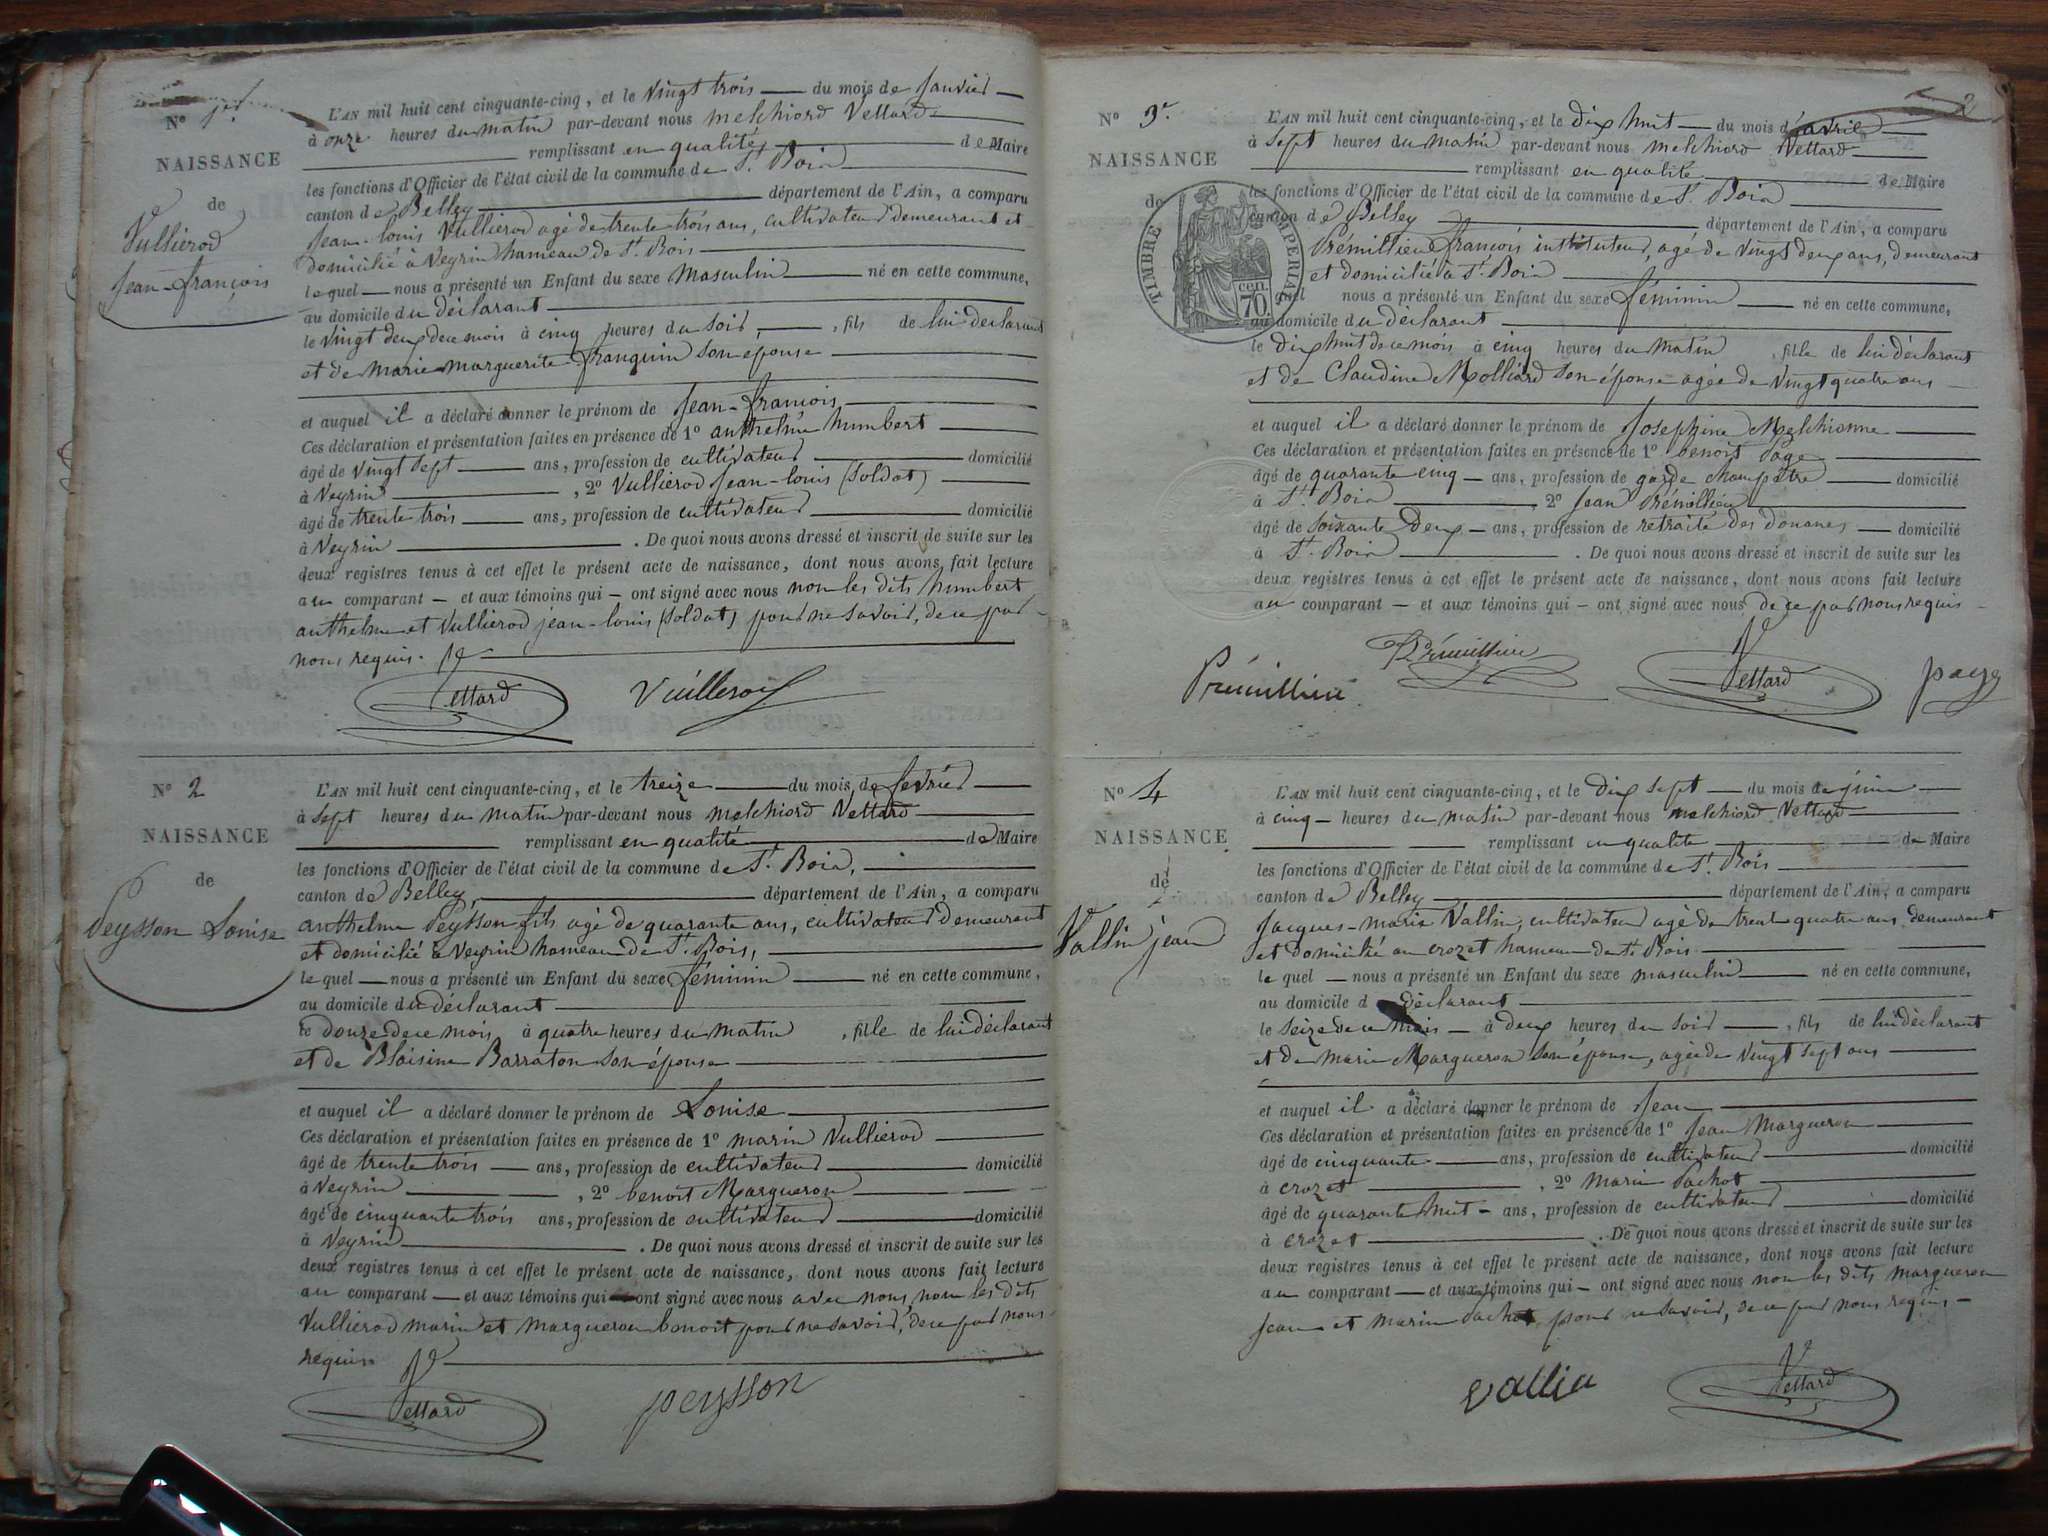 N° 1er
NAISSANCE
de
Vullierod
Jean-françois
L'AN mil huit cent cinquante-cinq, et le vingt trois du mois de Janvier
à onze heures du matin par-devant nous melchiord Vettard
remplissant en qualité de Maire
les fonctions d'Officier de l'état civil de la commune de St. Bois
canton de Belley département de l'Ain, a comparu
Jean-louis Vullierod agé de trente trois ans, cultivateur demeurant et
domicilié à Veyrin hameau de St Bois
le quel nous a présenté un Enfant du sexe Masculin né en cette commune,
au domicile du déclarant
le vingt deux de ce mois à cinq heures du soir, fils de lui déclarant
et de marie marguerite franquin son épouse
et auquel il a déclaré donner le prénom de Jean-francois
Ces déclaration et présentation faites en présence de 1° anthelme humbert
âgé de vingt sept ans, profession de cultivateur domicilié
à Veyrin, 2° Vullierod Jean-louis (soldat)
âgé de trente trois ans, profession de cultivateur domicilié
à Veyrin. De quoi nous avons dressé et inscrit de suite sur les
deux registres tenus à cet effet le présent acte de naissance, dont nous avons fait lecture
au comparant et aux témoins qui ont signé avec nous non les dits humbert
anthelme et Vullierod jean-louis (soldat) pour ne savoir, de ce par
nous requis.
Vettard Vuilleroy
N° 2
NAISSANCE
de
Peysson Louise
L'AN mil huit cent cinquante-cinq, et le treize du mois de fevrier
à sept heures du matin par-devant nous melchiord Vettard
remplissant en qualité de Maire
les fonctions d'Officier de l'état civil de la commune de St. Bois,
canton de Belley, département de l'Ain, a comparu
anthelme Peysson fils agé de quarante ans, cultivateur demeurant
et domicilié à Veyrin hameau de St. Bois,
le quel nous a présenté un Enfant du sexe féminin né en cette commune,
au domicile du déclarant
le douze de ce mois, à quatre heures du matin, fille de lui déclarant
et de Blaisine Barraton son épouse
et auquel il a déclaré donner le prénom de Louise
Ces déclaration et présentation faites en présence de 1° marin Vullierod
âgé de trente trois ans, profession de cultivateur domicilié
à Veyrin, 2° benoit Margueron
âgé de cinquante trois ans, profession de cultivateur domicilié
à Veyrin. De quoi nous avons dressé et inscrit de suite sur les
deux registres tenus à cet effet le présent acte de naissance, dont nous avons fait lecture
au comparant et aux témoins qui ont signé avec nous avec nous, non les dits
Vullierod marin et margueron benoit pour ne savoir, de ce par nous
requis
Vettard peysson
2
N° 3e
NAISSANCE
de
TIMBRE IMPERIAL
70 cen.
L'AN mil huit cent cinquante-cinq, et le dix huit du mois d'avril
à sept heures du matin par-devant nous melchiord Vettard
remplissant en qualité de Maire
les fonctions d'Officier de l'état civil de la commune de St. Bois
canton de Belley département de l'Ain, a comparu
Prémillieu françois instituteur, agé de vingt deux ans, demeurant
et domicilié à St. Bois
quel nous a présenté un Enfant du sexe féminin né en cette commune,
au domicile du déclarant
le dix huit de ce mois à cinq heures du matin, fille de lui déclarant
et de Claudine Molliard son épouse agée de vingt quatre ans
et auquel il a déclaré donner le prénom de Josephine Melchionne
Ces déclaration et présentation faites en présence de 1° benoit Page
âgé de quarante cinq ans, profession de garde champêtre domicilié
à St. Bois, 2° Jean Prémillieu
âgé de soixante deux ans, profession de retraité des douanes domicilié
à St. Bois. De quoi nous avons dressé et inscrit de suite sur les
deux registres tenus à cet effet le présent acte de naissance, dont nous avons fait lecture
au comparant et aux témoins qui ont signé avec nous de ce par nous requis
Prémillieu Prémillieu Vettard page
N° 4
NAISSANCE
de
Vallin jean
L'AN mil huit cent cinquante-cinq, et le dix sept du mois de juin
à cinq heures du matin par-devant nous melchiord Vettard
remplissant en qualité de Maire
les fonctions d'Officier de l'état civil de la commune de St. Bois
canton de Belley département de l'Ain, a comparu
Jacques-marie Vallin, cultivateur agé de trente quatre ans demeurant
et domicilié au crozet hameau de St Bois
le quel nous a présenté un Enfant du sexe masculin né en cette commune,
au domicile d déclarant
le seize de ce mois à deux heures du soir, fils de lui déclarant
et de marie Margueron son épouse, agée de vingt sept ans
et auquel il a déclaré donner le prénom de Jean
Ces déclaration et présentation faites en présence de 1° Jean Margueron
âgé de cinquante ans, profession de cultivateur domicilié
à crozet, 2° marin Pachot
âgé de quarante huit ans, profession de cultivateur domicilié
à crozet. De quoi nous avons dressé et inscrit de suite sur les
deux registres tenus à cet effet le présent acte de naissance, dont nous avons fait lecture
au comparant et aux témoins qui ont signé avec nous non les dits margueron
Jean et marin Pachot pour ne savoir, de ce par nous requis
vallin Vettard